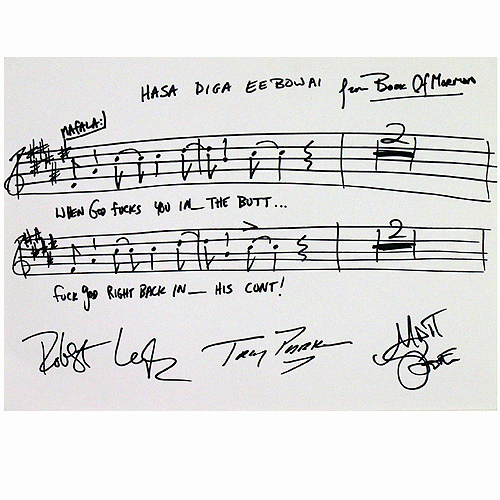 HASA DIGA EEBOWAI from Book Of Mormon
MAFALA:
2
WHEN GOD FUCKS YOU IN_ THE BUTT...
2
FUCK GOD RIGHT BACK IN_ HIS CUNT!
Robert Lopez Trey Parker MATT STONE